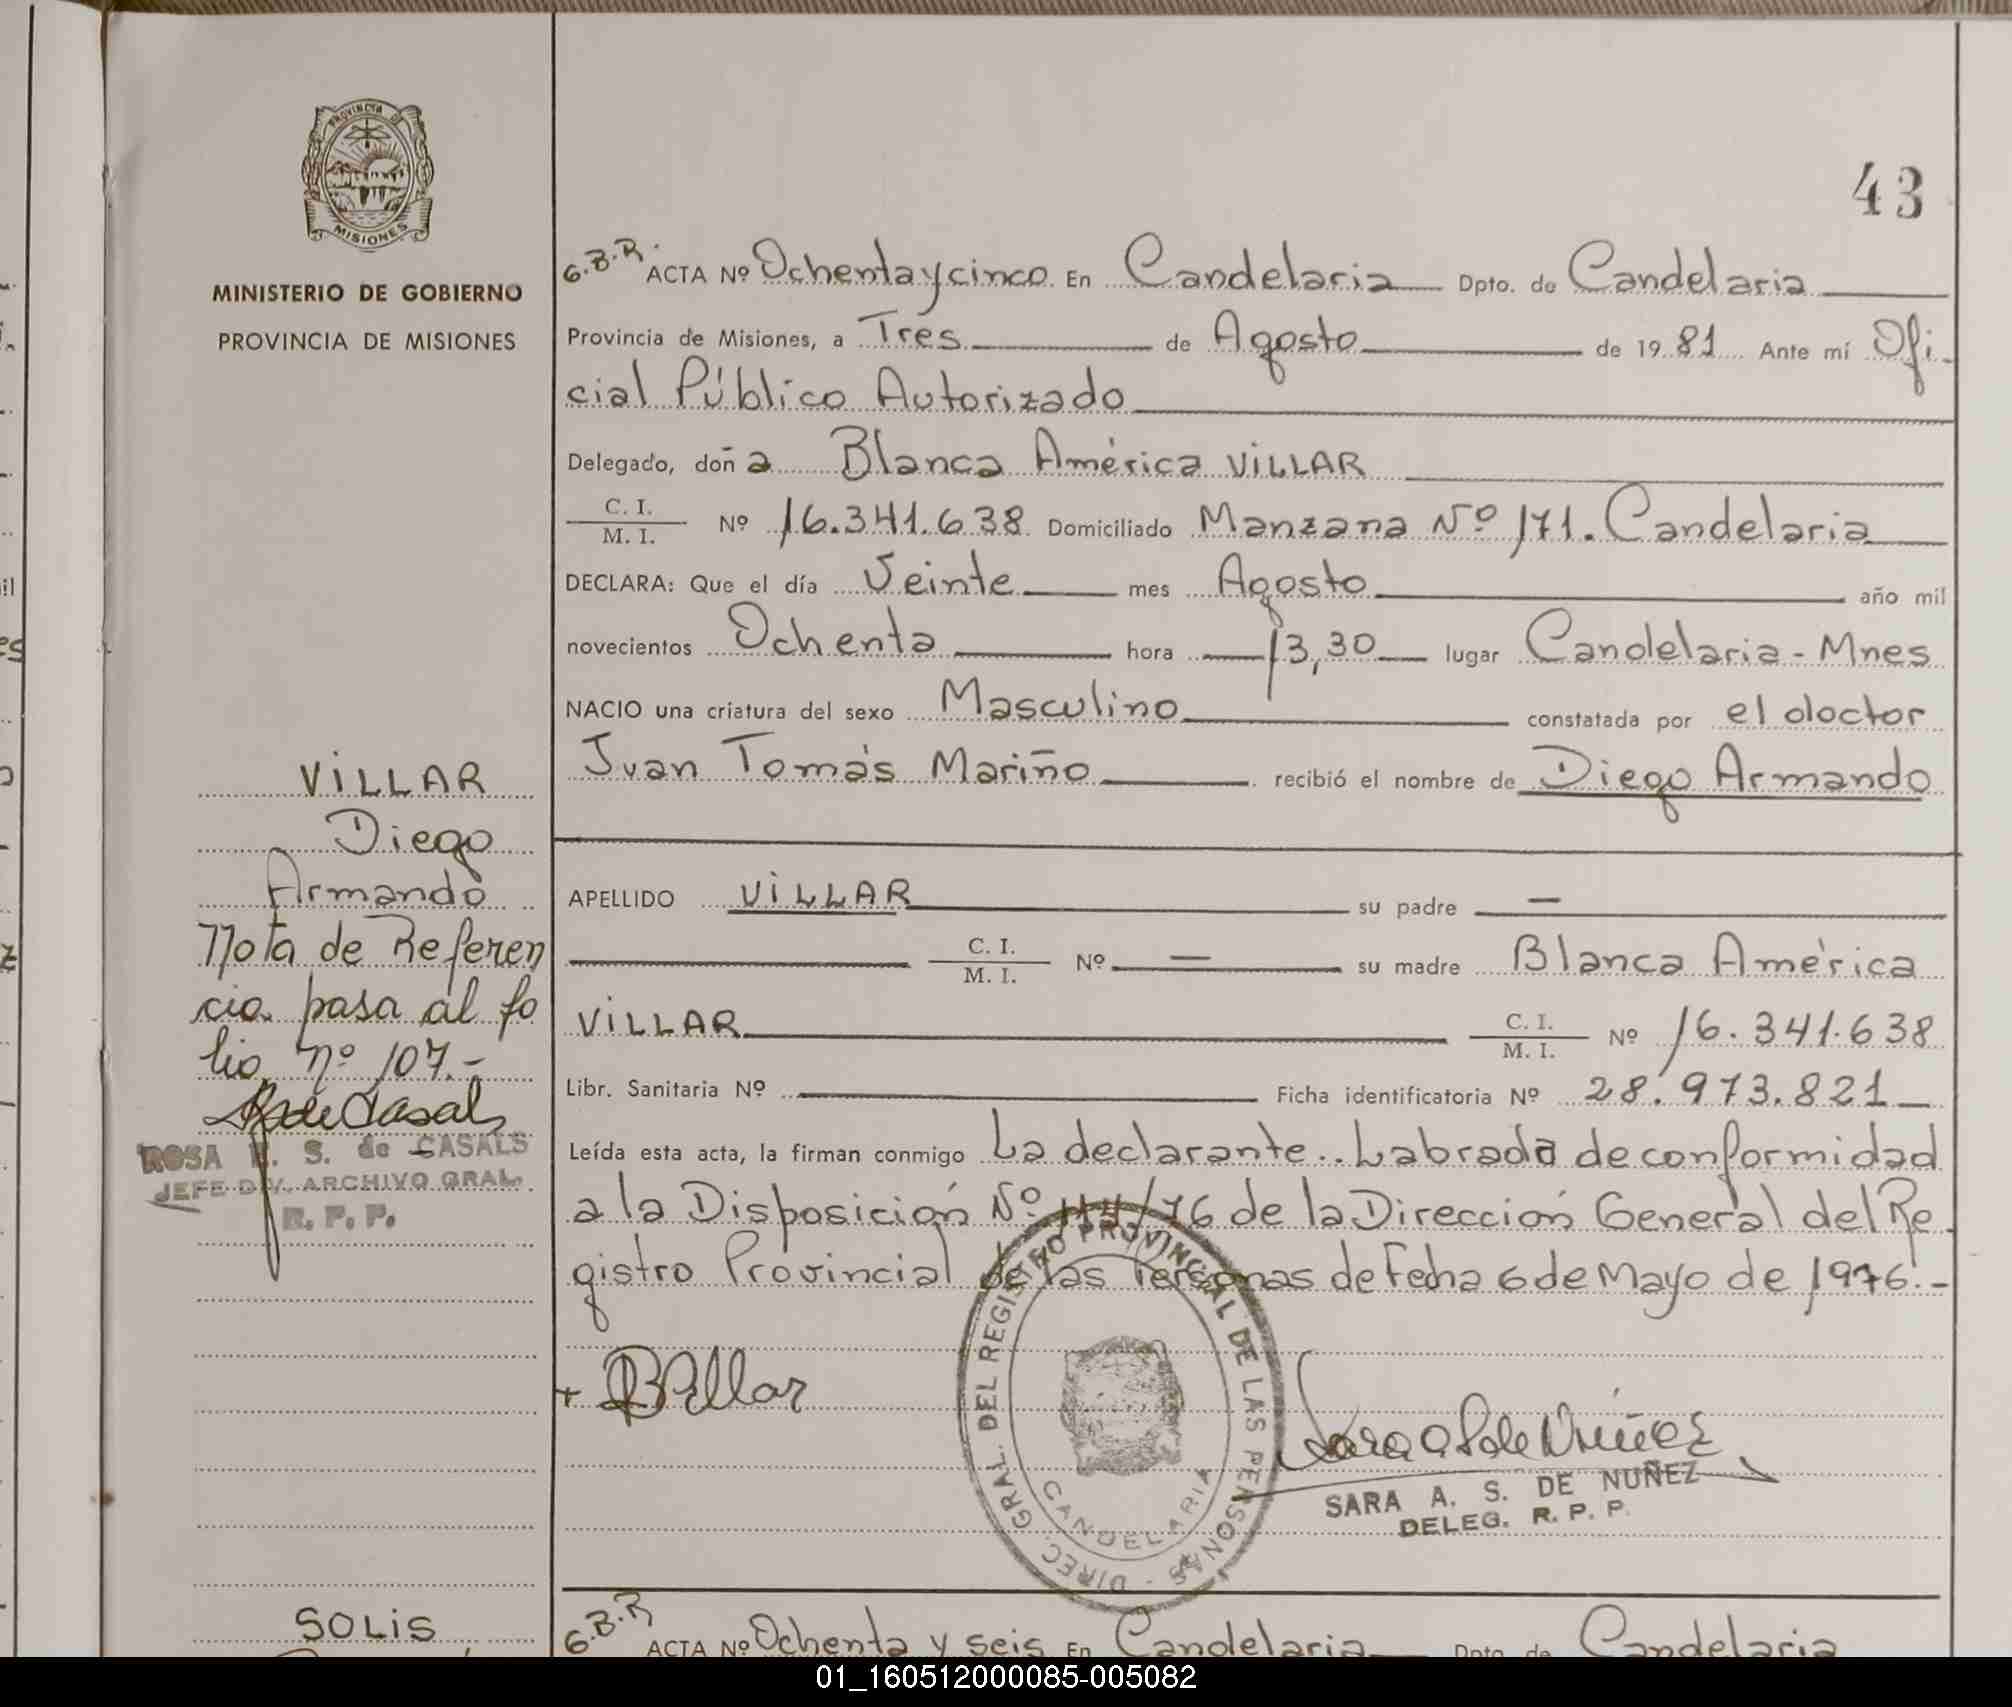 PROVINCIA DE
MISIONES
MINISTERIO DE GOBIERNO
PROVINCIA DE MISIONES
VILLAR
Diego
Armando
Nota de Referen
cia pasa al fo
lio nº 107.-
R de Casals
ROSA S. de CASALS
JEFE DIV. ARCHIVO GRAL.
R. P. P.
SOLIS
43
G.B.R. ACTA Nº Ochenta y cinco En Candelaria Dpto. de Candelaria
Provincia de Misiones, a Tres de Agosto de 1981 Ante mí Ofi-
cial Público Autorizado
Delegado, doña Blanca América VILLAR
C. I.
M. I. Nº 16.341.638 Domiciliado Manzana Nº 171. Candelaria
DECLARA: Que el día Veinte mes Agosto año mil
novecientos Ochenta hora 13,30 lugar Candelaria - Mnes
NACIO una criatura del sexo Masculino constatada por el doctor
Juan Tomás Mariño recibió el nombre de Diego Armando
APELLIDO VILLAR su padre —
C. I.
M. I. Nº — su madre Blanca América
VILLAR C. I.
M. I. Nº 16.341.638
Libr. Sanitaria Nº Ficha identificatoria Nº 28.973.821
Leída esta acta, la firman conmigo La declarante.. Labrada de conformidad
a la Disposición Nº /76 de la Dirección General del Re-
gistro Provincial de las Personas de Fecha 6 de Mayo de 1976.-
+ BVillar
DIREC. GRAL. DEL REGISTRO PROVINCIAL DE LAS PERSONAS -
CANDELARIA
Sara A S de Núñez
SARA A. S. DE NUÑEZ
DELEG. R. P. P.
G.B.R ACTA Nº Ochenta y seis En Candelaria Dpto. de Candelaria
01_160512000085-005082